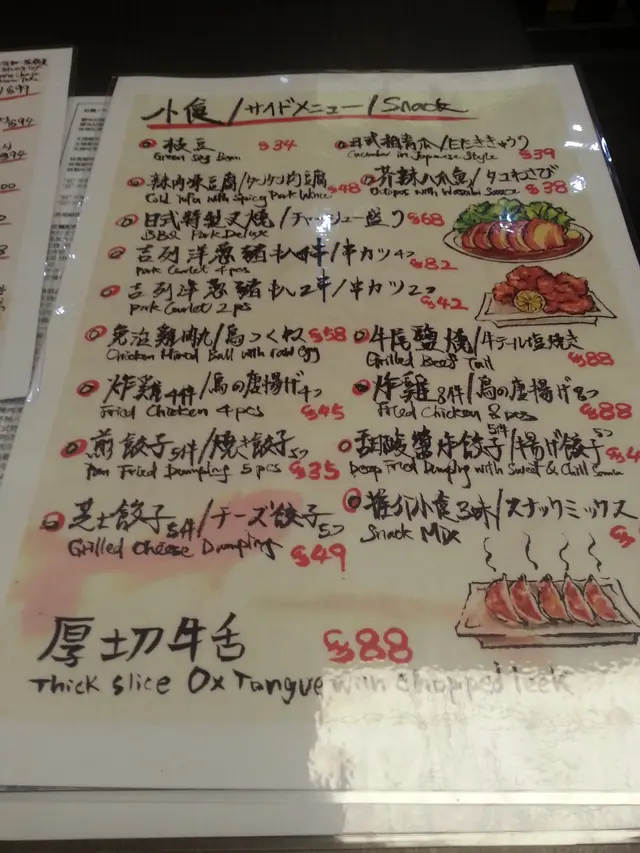 小食/サイドメニュー/Snack
枝豆 $34
Green Soy Bean
日式拍青瓜/たたききゅうり
Cucumber in Japanese Style $39
辣肉凍豆腐/
Cold Tofu with Spicy Pork $48
芥辣八爪魚/タコわさび
Octopus with Wasabi Sauce $38
日式特製叉燒/チャーシュー盛り $68
BBQ Pork Deluxe
吉列洋蔥豬扒4串/串カツ4つ
Pork Cutlet 4 pcs $82
吉列洋蔥豬扒2串/串カツ2つ
Pork Cutlet 2 pcs $42
免治雞肉丸/鳥つくね $58
Chicken Minced Ball with raw Egg
牛尾鹽燒/牛テール塩焼き
Grilled Beef Tail $88
炸雞4件/鳥の唐揚げ4つ
Fried Chicken 4 pcs $45
炸雞8件/鳥の唐揚げ8つ
Fried Chicken 8 pcs $88
煎餃子5件/焼き餃子5つ
Pan Fried Dumpling 5 pcs $35
甜酸醬炸餃子5件/揚げ餃子5つ
Deep Fried Dumpling with Sweet & Chilli
芝士餃子5件/チーズ餃子5つ
Grilled Cheese Dumpling $49
推介小食3味/スナックミックス
Snack Mix
厚切牛舌 $88
Thick slice Ox Tongue with chopped leek